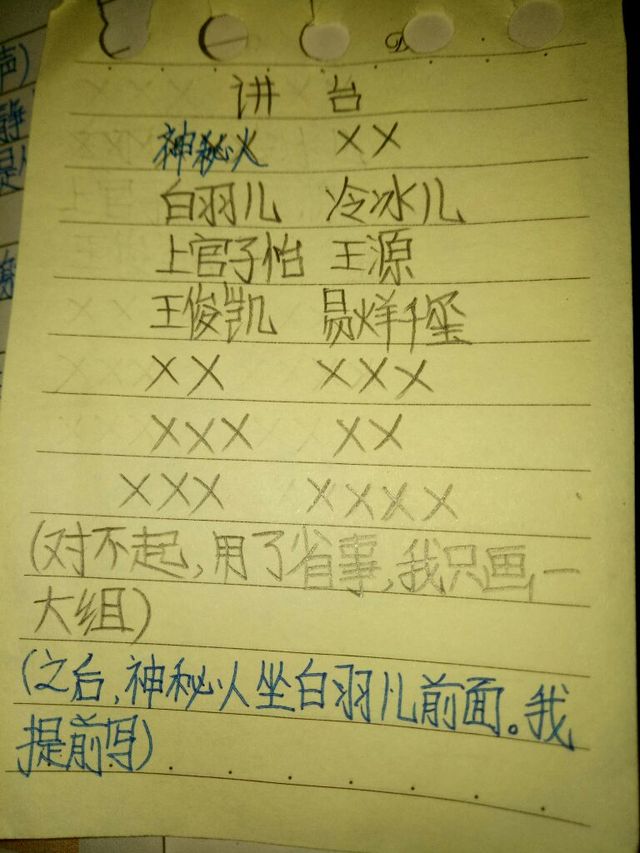 讲 台
神秘人 ××
白羽儿 冷冰儿
上官子怡 王源
王俊凯 易烊千玺
×× ×××
××× ××
××× ××××
(对不起,用了省事,我只画一
大组)
(之后,神秘人坐白羽儿前面。我
提前写)